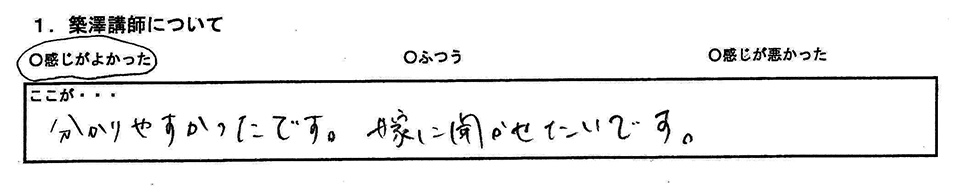 1. 築澤講師について
〇感じがよかった 〇ふつう 〇感じが悪かった
ここが・・・
分かりやすかったです。嫁に聞かせたいです。